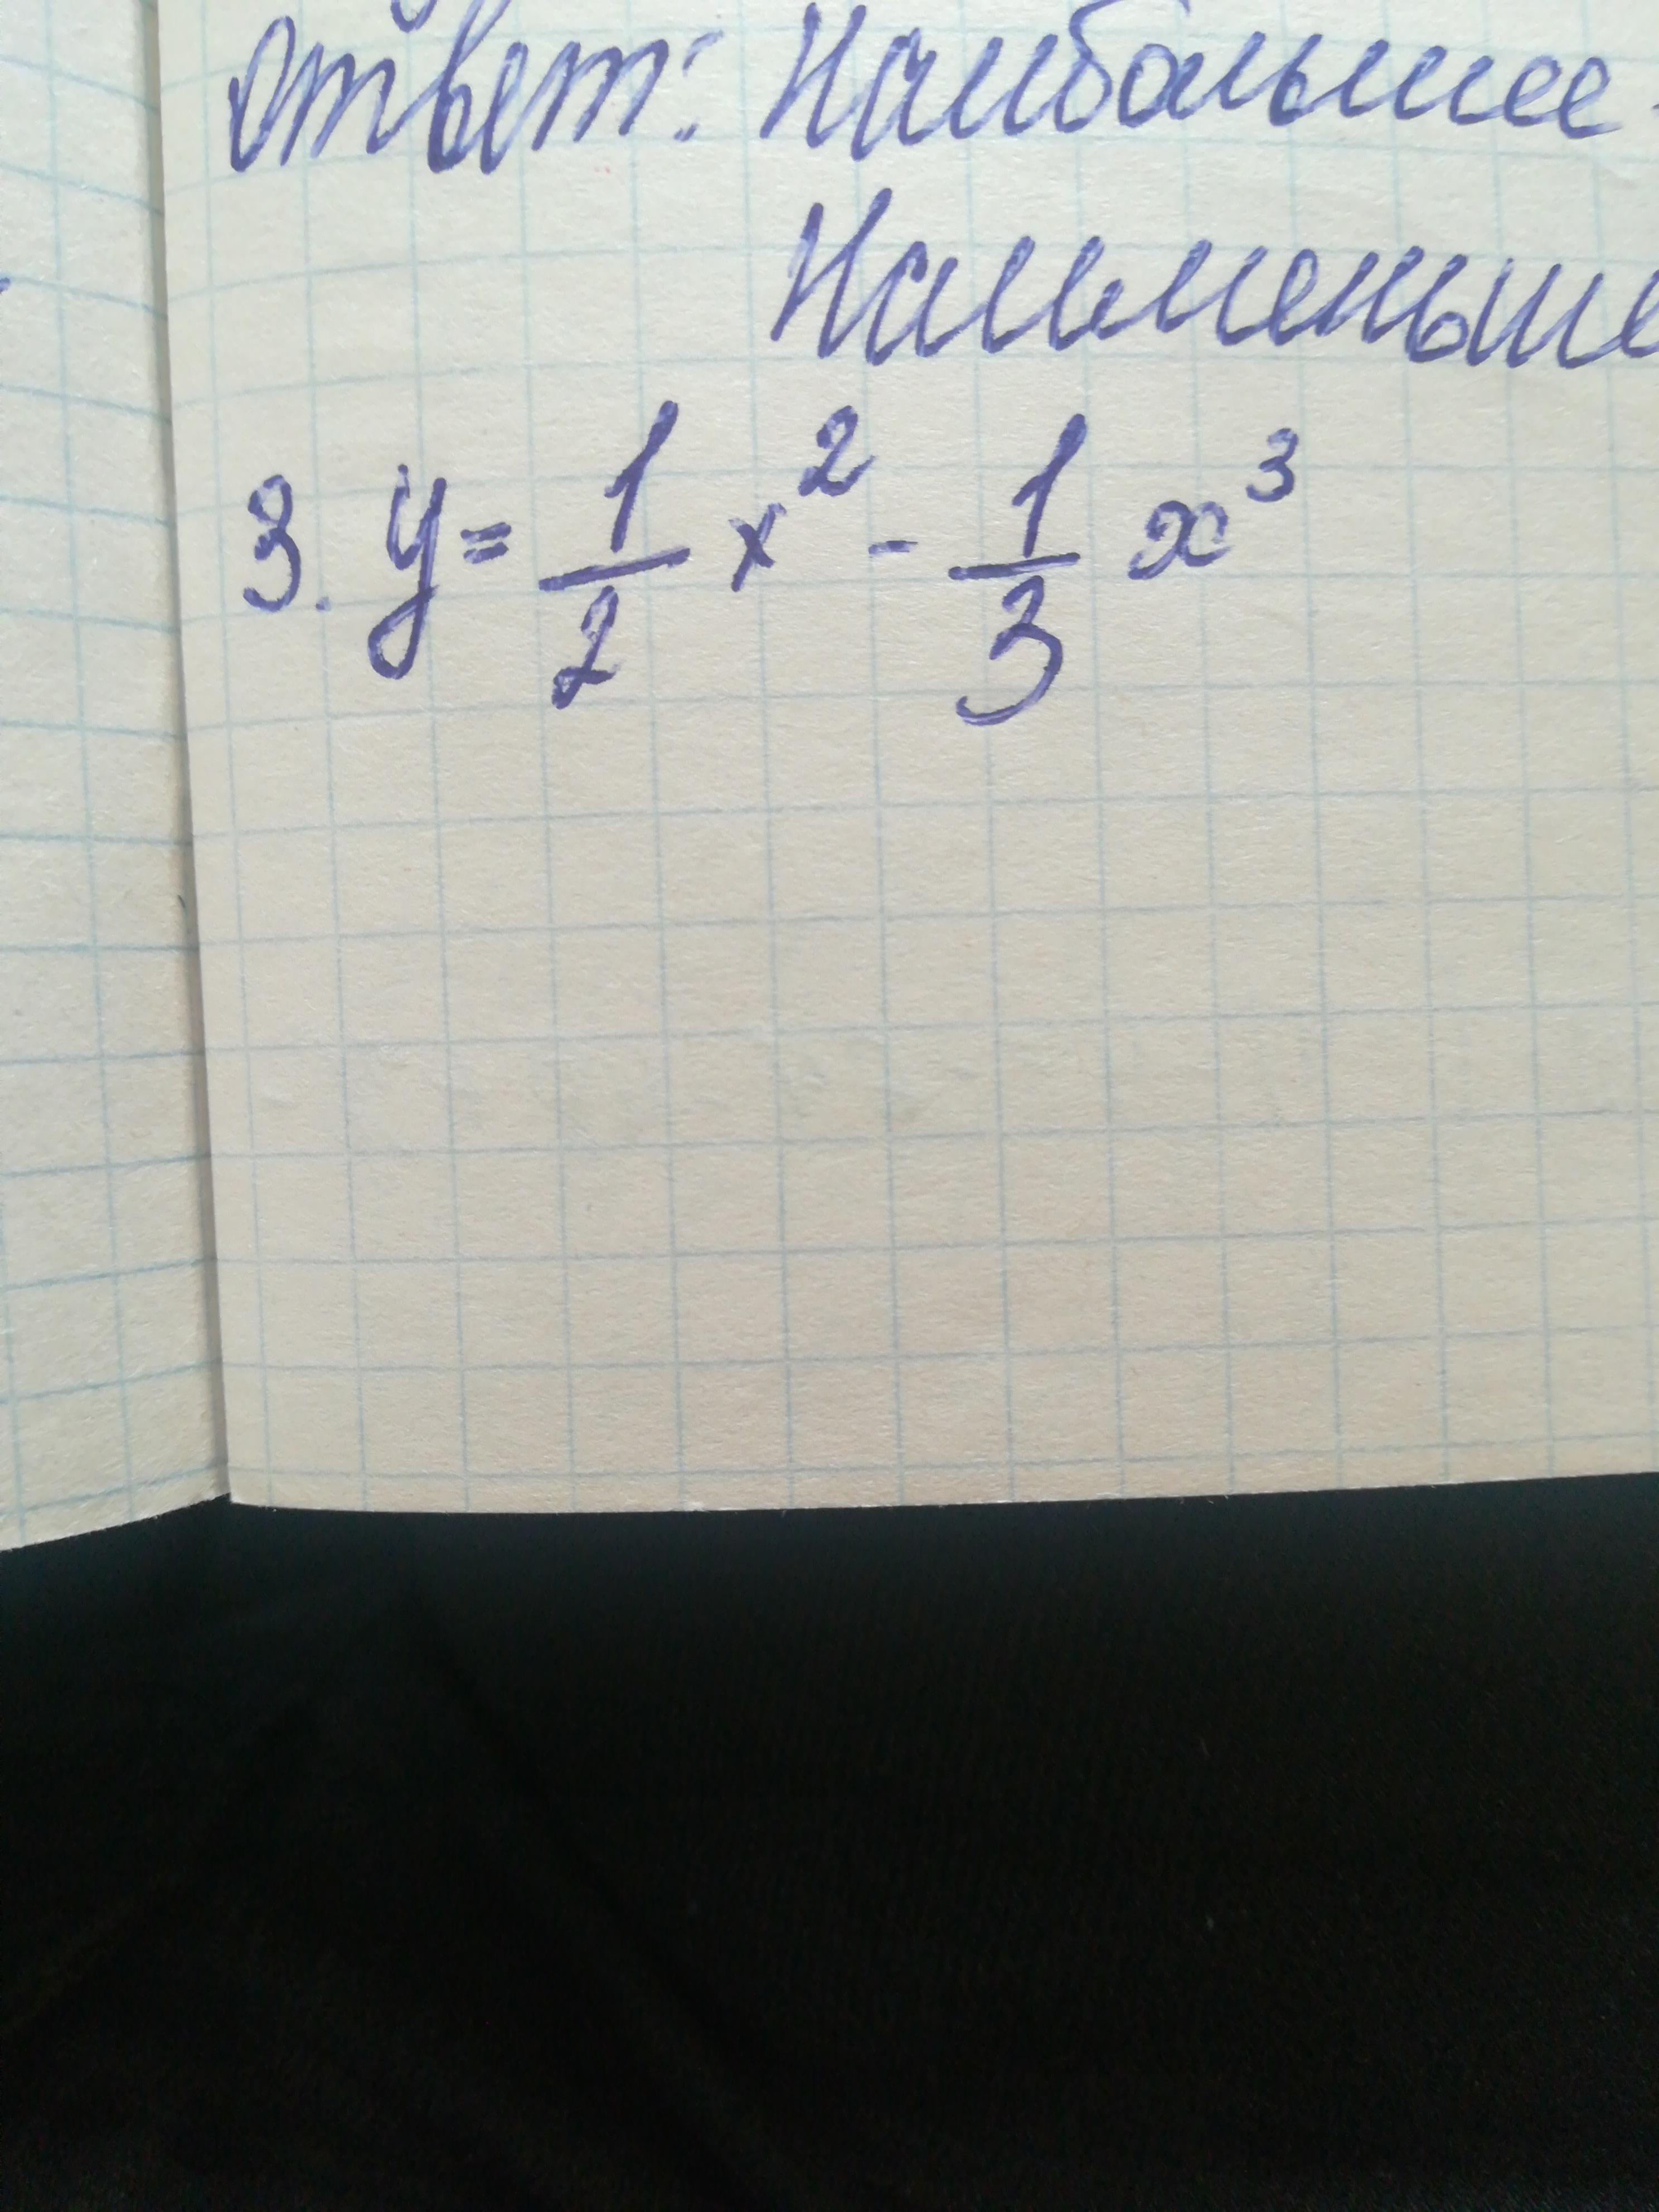 Ответ: Наибольшее -
Наименьше
3. y = 1/2 x² - 1/3 x³